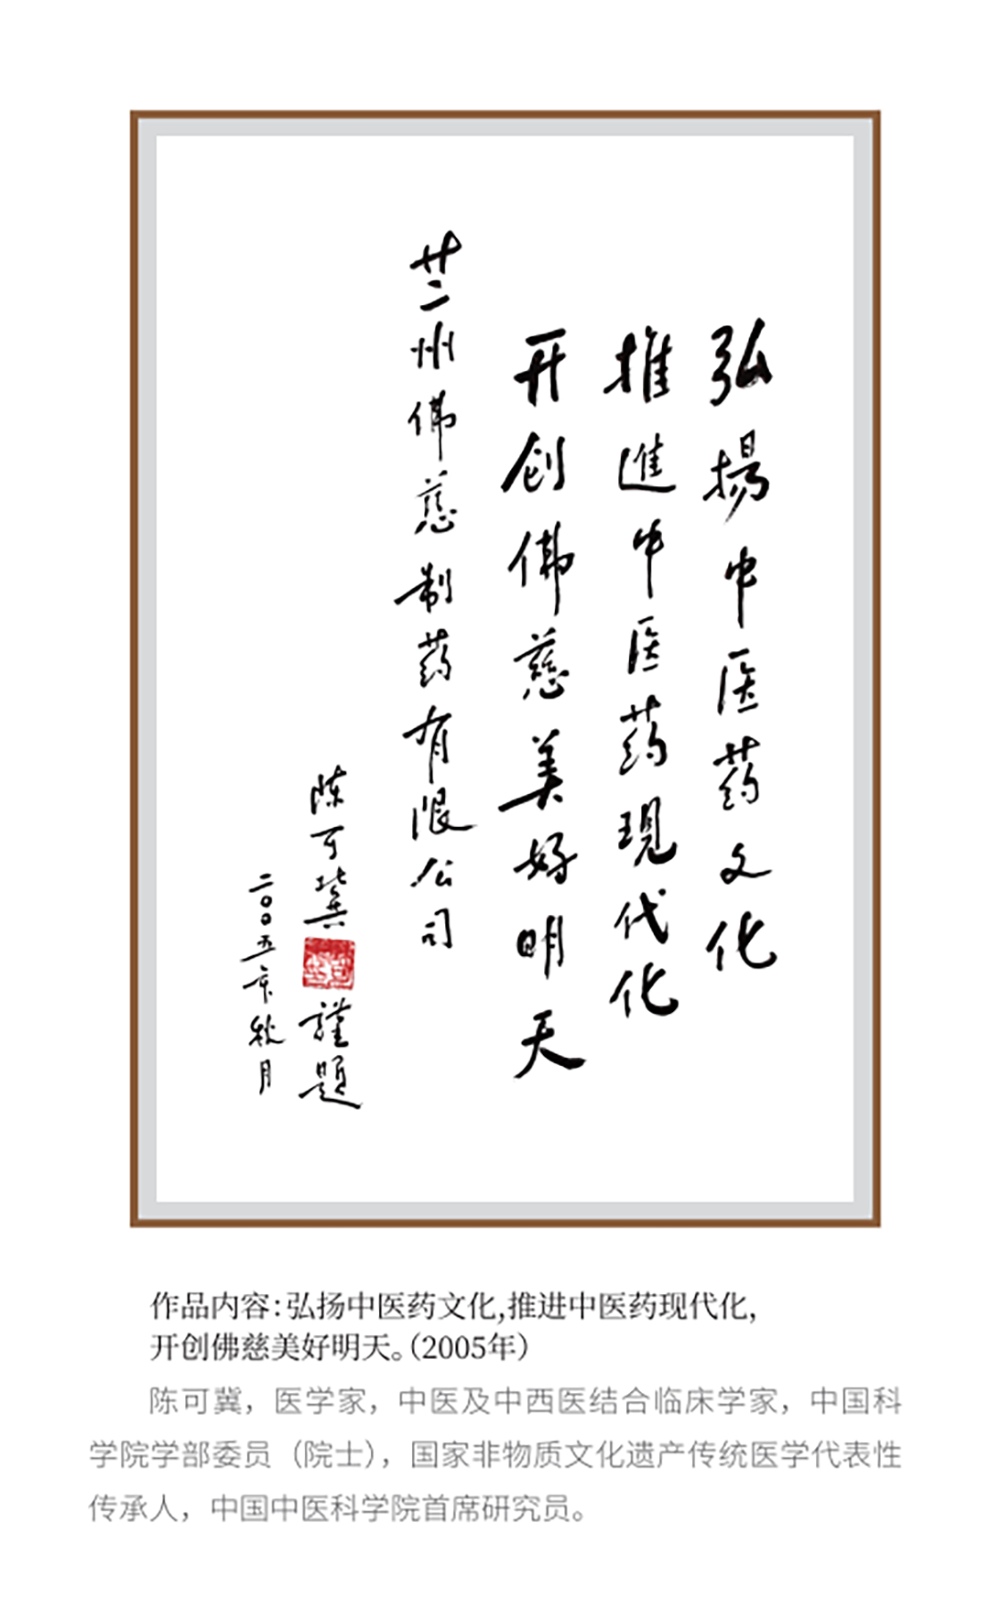 弘揚中医药文化
推進中医药現代化
开创佛慈美好明天
兰州佛慈制药有限公司
陈可冀
謹題
二〇〇五年秋月
作品内容：弘扬中医药文化,推进中医药现代化,
开创佛慈美好明天。（2005年）
陈可冀，医学家，中医及中西医结合临床学家，中国科
学院学部委员（院士），国家非物质文化遗产传统医学代表性
传承人，中国中医科学院首席研究员。